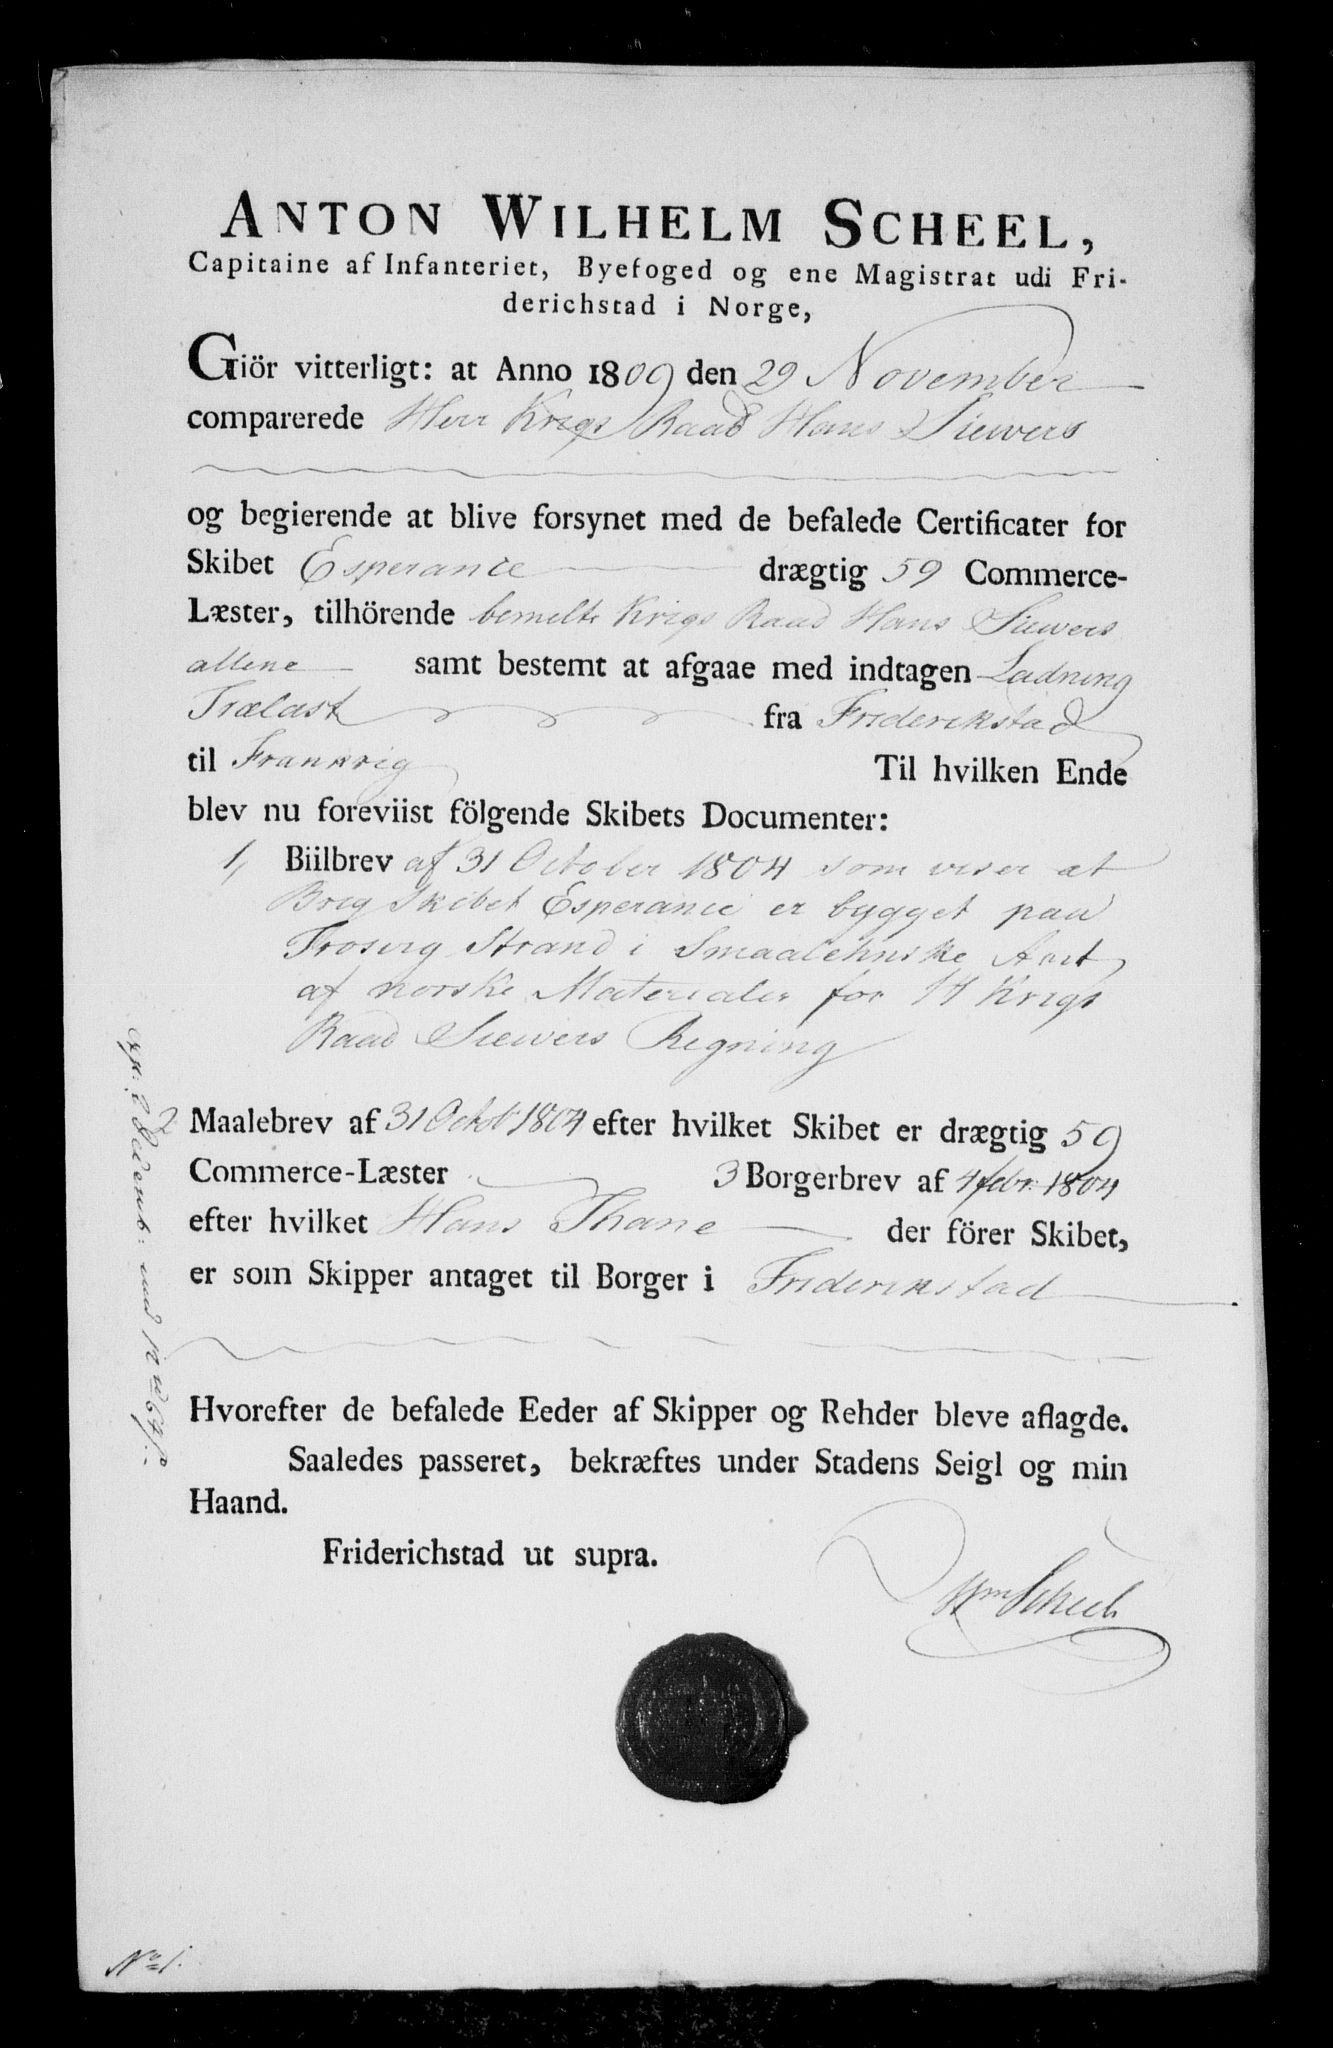 ANTON WILHELM SCHEEL,
Capitaine af Infanteriet, Byefoged og ene Magistrat udi Fri-
derichstad i Norge,
Giör vitterligt: at Anno 1809 den 29 November
comparerede Herr Krigs Raad Hans Siewers
og begierende at blive forsynet med de befalede Certificater for
Skibet Esperance drægtig 59 Commerce-
Læster, tilhörende bemelte Krigs Raad Hans Siewers
allene samt bestemt at afgaae med indtagen Ladning
Trælast fra Friderikstad
til Frankrig Til hvilken Ende
blev nu foreviist fölgende Skibets Documenter:
1, Biilbrev af 31 October 1804 som viser at
Brig Skibet Esperance er bygget paa
Strand i Smaalehnske
af norske Materialer for H Krigs
Raad Siewers Regning
2 Maalebrev af 31 Octob 1804 efter hvilket Skibet er drægtig 59
Commerce-Læster 3 Borgerbrev af 4 febr: 1804
efter hvilket Hans Thane der förer Skibet,
er som Skipper antaget til Borger i Friderikstad
Hvorefter de befalede Eeder af Skipper og Rehder bleve aflagde.
Saaledes passeret, bekræftes under Stadens Seigl og min
Haand.
Friderichstad ut supra.
Wm Scheel
No 1.